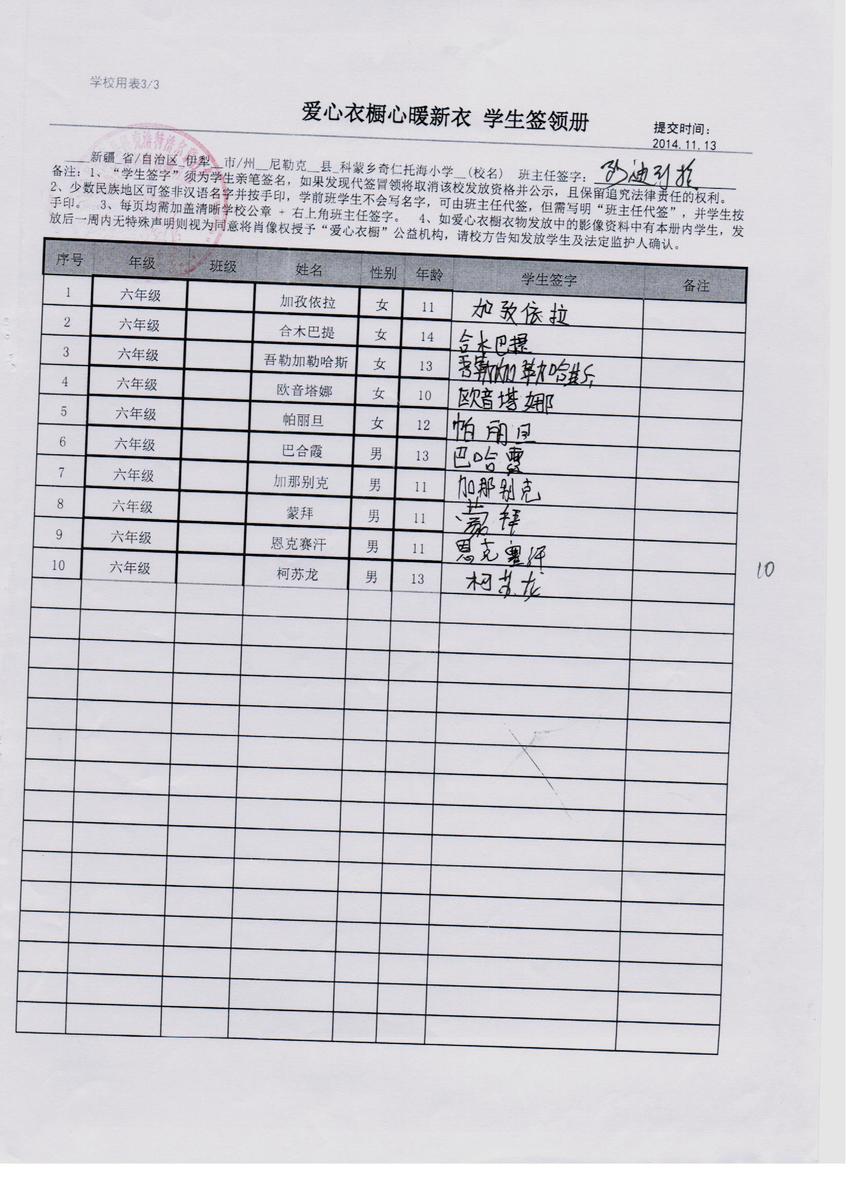 学校用表3/3
爱心衣橱心暖新衣 学生签领册
提交时间：
2014.11.13
新疆 省/自治区 伊犁 市/州 尼勒克 县 科蒙乡奇仁托海小学 (校名) 班主任签字：
备注：1、“学生签字”须为学生亲笔签名，如果发现代签冒领将取消该校发放资格并公示，且保留追究法律责任的权利。
2、少数民族地区可签非汉语名字并按手印，学前班学生不会写名字，可由班主任代签，但需写明“班主任代签”，并学生按
手印。 3、每页均需加盖清晰学校公章 + 右上角班主任签字。 4、如爱心衣橱衣物发放中的影像资料中有本册内学生，发
放后一周内无特殊声明则视为同意将肖像权授予“爱心衣橱”公益机构，请校方告知发放学生及法定监护人确认。
序号 年级 班级 姓名 性别 年龄 学生签字 备注
1 六年级 加孜依拉 女 11 加孜依拉
2 六年级 合木巴提 女 14 合木巴提
3 六年级 吾勒加勒哈斯 女 13 吾勒加勒哈斯
4 六年级 欧音塔娜 女 10 欧音塔娜
5 六年级 帕丽旦 女 12 帕丽旦
6 六年级 巴合霞 男 13 巴哈霞
7 六年级 加那别克 男 11 加那别克
8 六年级 蒙拜 男 11 蒙拜
9 六年级 恩克赛汗 男 11 恩克赛汗
10 六年级 柯苏龙 男 13 柯苏龙
10